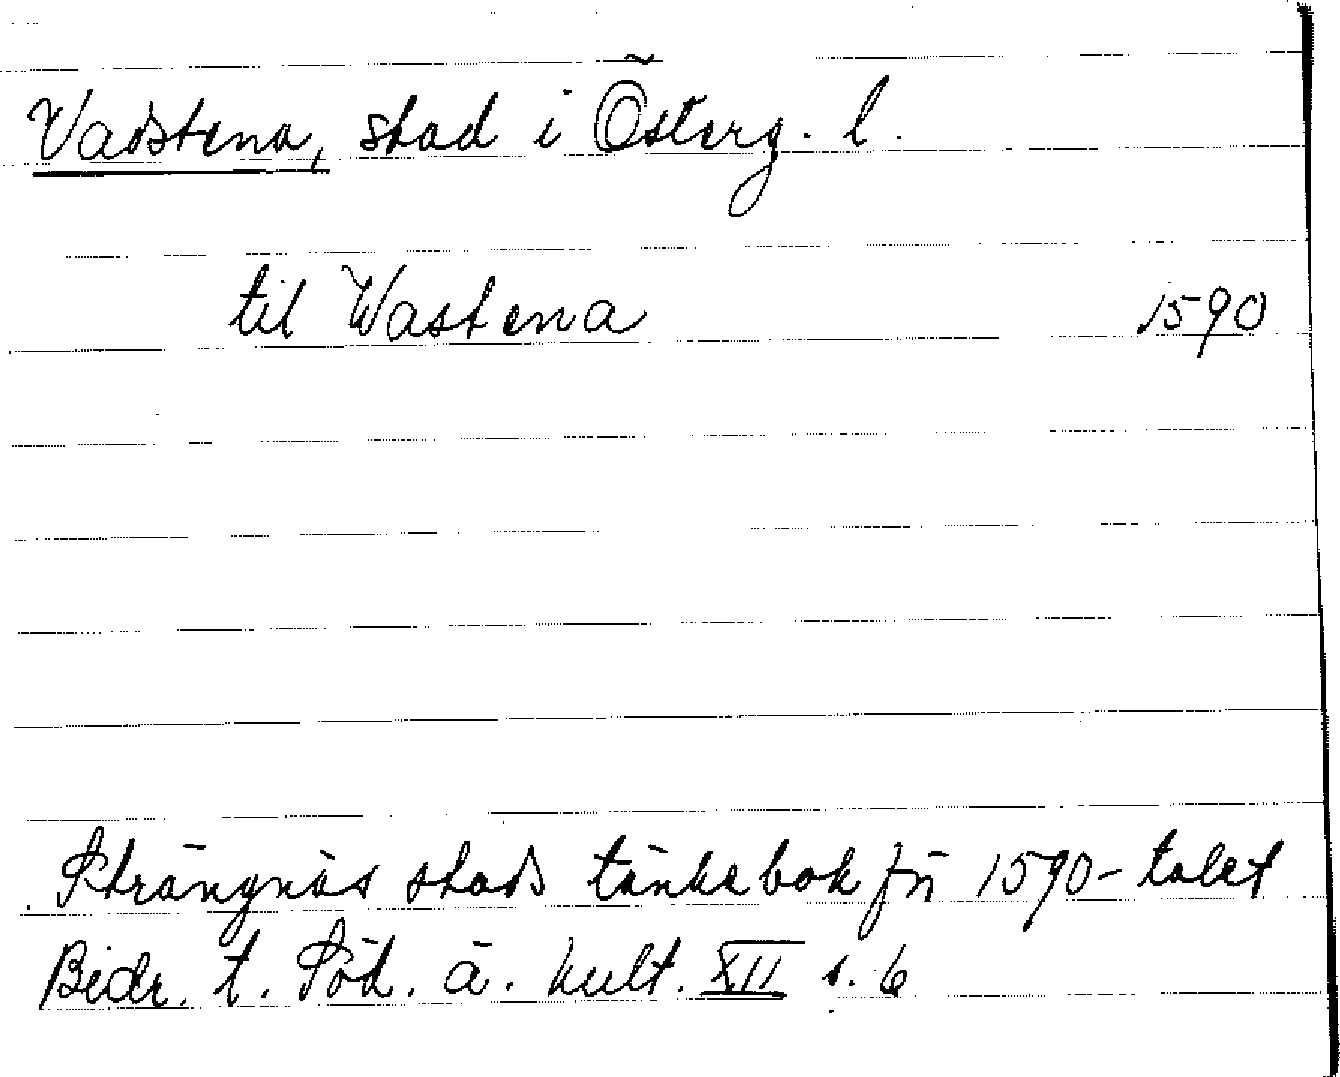 Vadstena, stad i Österg. l.
til Wastena 1590
Strängnäs stads tänkebok för 1590-talet
Bidr. t. Söd. ä. kult. XII s. 6